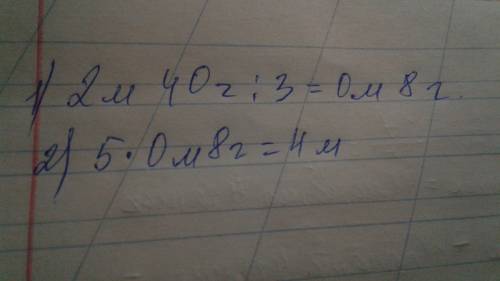 1) 2м 40г : 3 = 0м 8г.
2) 5 · 0м 8г = 4м